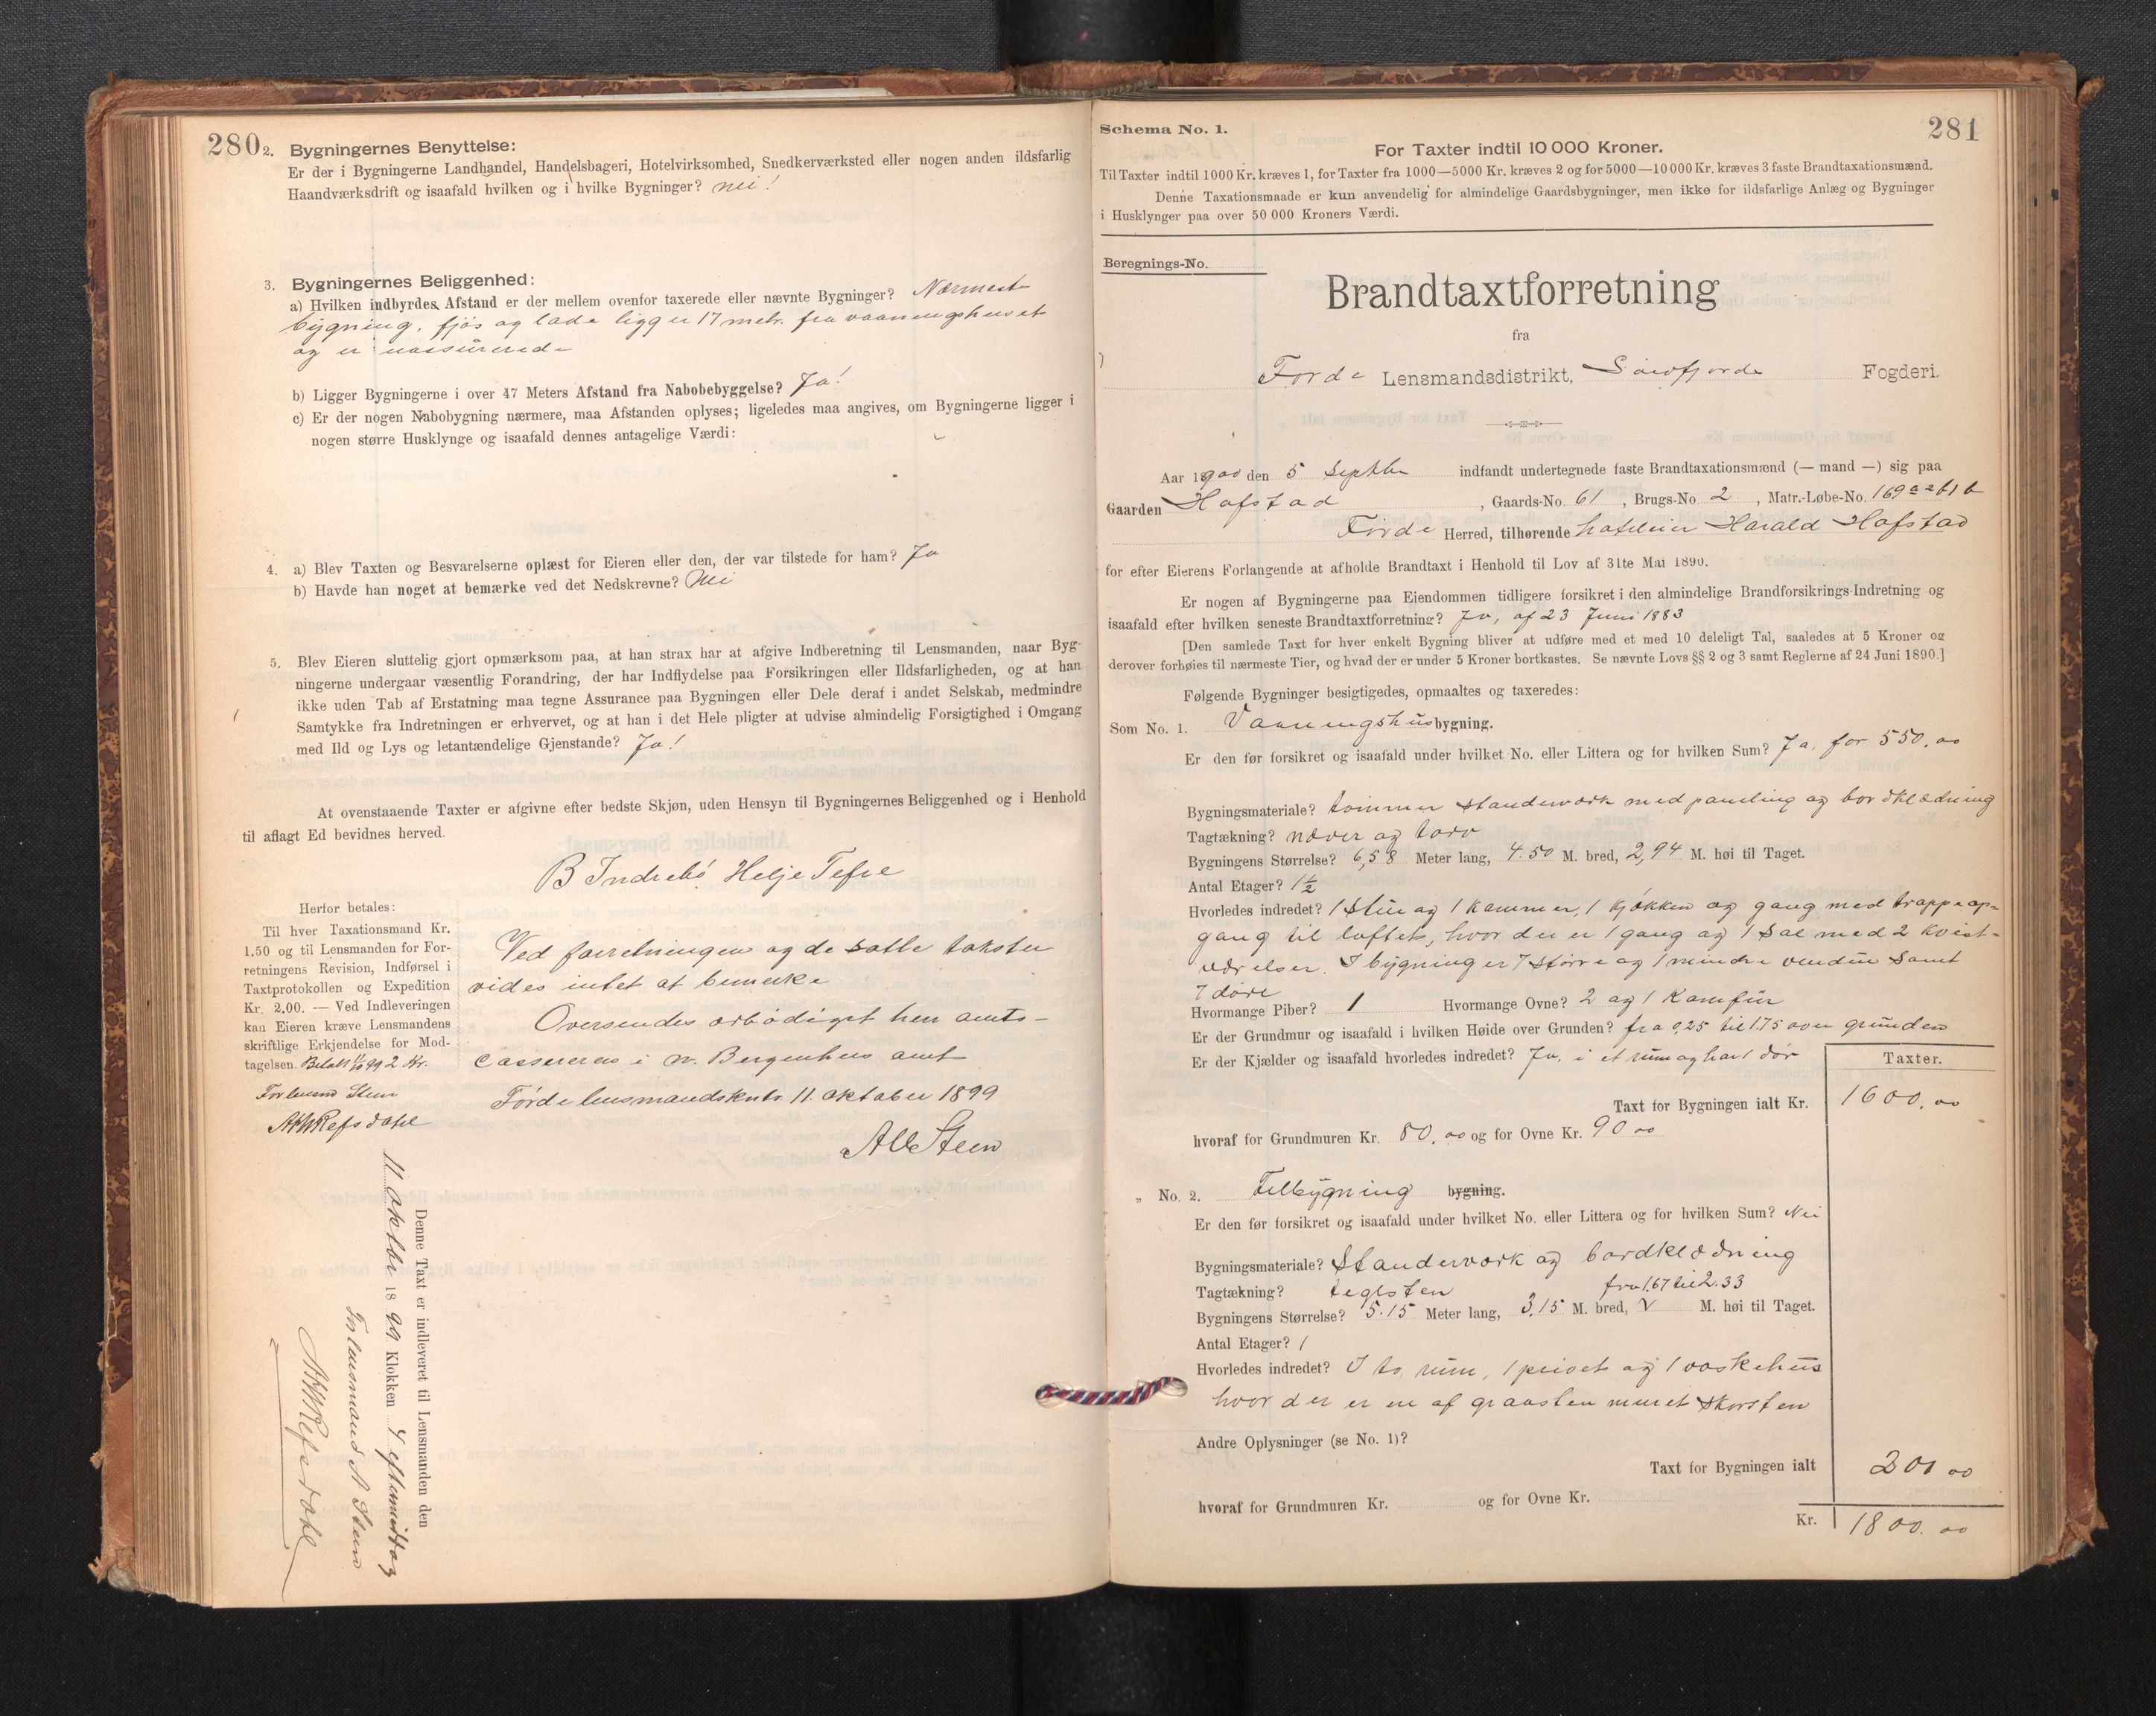 280
2. Bygningernes Benyttelse:
Er der i Bygningerne Landhandel, Handelsbageri, Hotelvirksomhed, Snedkerværksted eller nogen anden ildsfarlig
Haandværksdrift og isaafald hvilken og i hvilke Bygninger? nei!
3. Bygningernes Beliggenhed:
a) Hvilken indbyrdes Afstand er der mellem ovenfor taxerede eller nævnte Bygninger? Nærmest
bygning, fjøs og lade ligger 17 metr. fra vaaningshuset
og er uassurerede
b) Ligger Bygningerne i over 47 Meters Afstand fra Nabobebyggelse? Ja!
c) Er der nogen Nabobygning nærmere, maa Afstanden oplyses; ligeledes maa angives, om Bygningerne ligger i
nogen større Husklynge og isaafald dennes antagelige Værdi:
4. a) Blev Taxten og Besvarelserne oplæst for Eieren eller den, der var tilstede for ham? Ja
b) Havde han noget at bemærke ved det Nedskrevne? Nei
5. Blev Eieren sluttelig gjort opmærksom paa, at han strax har at afgive Indberetning til Lensmanden, naar Byg-
ningerne undergaar væsentlig Forandring, der har Indflydelse paa Forsikringen eller Ildsfarligheden, og at han
ikke uden Tab af Erstatning maa tegne Assurance paa Bygningen eller Dele deraf i andet Selskab, medmindre
Samtykke fra Indretningen er erhvervet, og at han i det Hele pligter at udvise almindelig Forsigtighed i Omgang
med Ild og Lys og letantændelige Gjenstande? Ja!
At ovenstaaende Taxter er afgivne efter bedste Skjøn, uden Hensyn til Bygningernes Beliggenhed og i Henhold
til aflagt Ed bevidnes herved.
B Indrebø Helje Tefre
Herfor betales:
Til hver Taxationsmand Kr.
1.50 og til Lensmanden for For-
retningens Revision, Indførsel i
Taxtprotokollen og Expedition
Kr. 2,00. — Ved Indleveringen
kan Eieren kræve Lensmandens
skriftlige Erkjendelse for Mod-
tagelsen. Betalt 11/10 99 2 Kr.
For lensmd Steen
AMRefsdahl
Ved forretningen og de satte takster
vides intet at bemerke
Oversendes ærbødigst herr amts-
cassereren i n. Bergenhus amt
Førde lensmandskntr. 11. oktober 1899
A Steen
Denne Taxt er indleveret til Lensmanden den
11 oktbr 1899 Klokken 4 eftermiddag
For lensmand A Steen
AMRefsdahl
281
Schema No. 1.
For Taxter indtil 10 000 Kroner.
Til Taxter indtil 1000 Kr. kræves 1, for Taxter fra 1000—5000 Kr. kræves 2 og for 5000—10 000 Kr. kræves 3 faste Brandtaxationsmænd.
Denne Taxationsmaade er kun anvendelig for almindelige Gaardsbygninger, men ikke for ildsfarlige Anlæg og Bygninger
i Husklynger paa over 50 000 Kroners Værdi.
Beregnings-No.
Brandtaxtforretning
fra
Førde Lensmandsdistrikt, Søndfjorde Fogderi.
Aar 1900 den 5 Septbr indfandt undertegnede faste Brandtaxationsmænd (— mand —) sig paa
Gaarden Hafstad, Gaards-No. 61, Brugs-No. 2, Matr.-Løbe-No. 169
Førde Herred, tilhørende Harald Hafstad
for efter Eierens Forlangende at afholde Brandtaxt i Henhold til Lov af 31te Mai 1890.
Er nogen af Bygningerne paa Eiendommen tidligere forsikret i den almindelige Brandforsikrings-Indretning og
isaafald efter hvilken seneste Brandtaxtforretning? Ja, af 23 Juni 1883
[Den samlede Taxt for hver enkelt Bygning bliver at udføre med et med 10 deleligt Tal, saaledes at 5 Kroner og
derover forhøies til nærmeste Tier, og hvad der er under 5 Kroner bortkastes. Se nævnte Lovs §§ 2 og 3 samt Reglerne af 24 Juni 1890.]
Følgende Bygninger besigtigedes, opmaaltes og taxeredes:
Som No. 1. Vaaningshus bygning.
Er den før forsikret og isaafald under hvilket No. eller Littera og for hvilken Sum? Ja. for 550.00
Bygningsmateriale? tømmer standerverk med paneling og bordklædning
Tagtækning? næver og torv
Bygningens Størrelse? 6,58 Meter lang, 4.50 M. bred, 2,94 M. høi til Taget.
Antal Etager? 1½
Hvorledes indredet? 1 Stue og 1 Kammer, 1 kjøkken og gang med trappeop-
gang til loftet, hvor der er 1 gang og 1 Sal med 2 kvist-
værelser. I bygning er 7 større og 1 mindre vinduer samt
7 døre
Hvormange Piber? 1 Hvormange Ovne? 2 og 1 Kamfin
Er der Grundmur og isaafald i hvilken Høide over Grunden? fra 0,25 til 1.75 over grunden
Er der Kjælder og isaafald hvorledes indredet? Ja, i et rum og har 1 dør
Taxter.
Taxt for Bygningen ialt Kr. 1600.00
hvoraf for Grundmuren Kr. 80.00 og for Ovne Kr. 90 00
„ No. 2. Tilbygning bygning.
Er den før forsikret og isaafald under hvilket No. eller Littera og for hvilken Sum? Nei
Bygningsmateriale? Standerverk og bordklædning
Tagtækning? teglsten fra 1.67 til 2.33
Bygningens Størrelse? 5.15 Meter lang, 3,15 M. bred, V M. høi til Taget.
Antal Etager? 1
Hvorledes indredet? I to rum, 1 privet og 1 vaskehus
hvor der er en af graasten muret Skorsten
Andre Oplysninger (se No. 1)?
Taxt for Bygningen ialt 200 00
hvoraf for Grundmuren Kr. og for Ovne Kr.
Kr. 1800.00